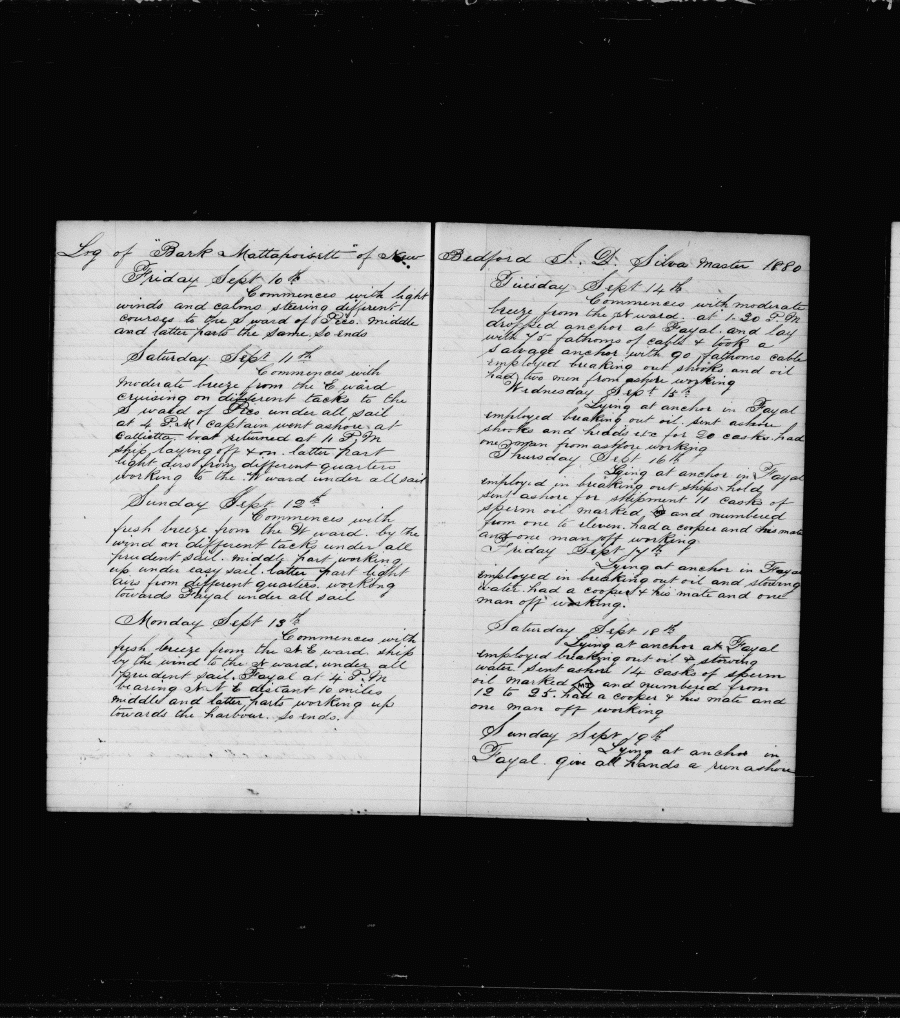 Log of "Bark Mattapoisett" of New Bedford J. D. Silva master 1880
Friday Sept 10th
Commences with light
winds and calms steering different
courses to the S ward of Pico. middle
and latter parts the same. So ends
Saturday Sept 11th
Commences with
moderate breeze from the E ward
cruising on different tacks to the
S wald of Pico under all sail
at 4 P.M captain went ashore at
boat returned at 11 P.M
ship laying off & on. latter part
light from different quarters
working to the W ward under all sail
Sunday Sept 12th
Commences with
fresh breeze from the W ward. by the
wind on different tacks under all
prudent sail. middle part working
up under easy sail. latter part light
airs from different quarters. working
towards Fayal under all sail
Monday Sept 13th
Commences with
fresh breeze from the N E ward. ship
by the wind to the N ward. under all
prudent sail. Fayal at 4 P.M
bearing N N E distant 10 miles
middle and latter parts working up
towards the harbour. So ends.
Tuesday Sept 14th
Commences with moderate
breeze from the N ward. at 1.30 P.M
dropped anchor at Fayal. and lay
with 75 fathoms of cable & took a
salvage anchor with 90 fathoms cable
employed breaking out shooks and oil
had two men from ashore working
Wednesday Sept 15th
Lying at anchor in Fayal
employed breaking out oil. sent ashore
shooks and heads etc for 20 casks. had
one man from ashore working
Thursday Sept 16th
Lying at anchor in Fayal
employed in breaking out ships hold
sent ashore for shipment 11 casks of
sperm oil marked and numbered
from one to eleven. had a cooper and his mate
and one man off working
Friday Sept 17th
Lying at anchor in Fayal
employed in breaking out oil and stowing
water. had a cooper & his mate and one
man off working.
Saturday Sept 18th
Lying at anchor at Fayal
employed breaking out oil & stowing
water. sent ashore 14 casks of sperm
oil marked and numbered from
12 to 25. had a cooper & his mate and
one man off working
Sunday Sept 19th
Lying at anchor in
Fayal. give all hands a run ashore